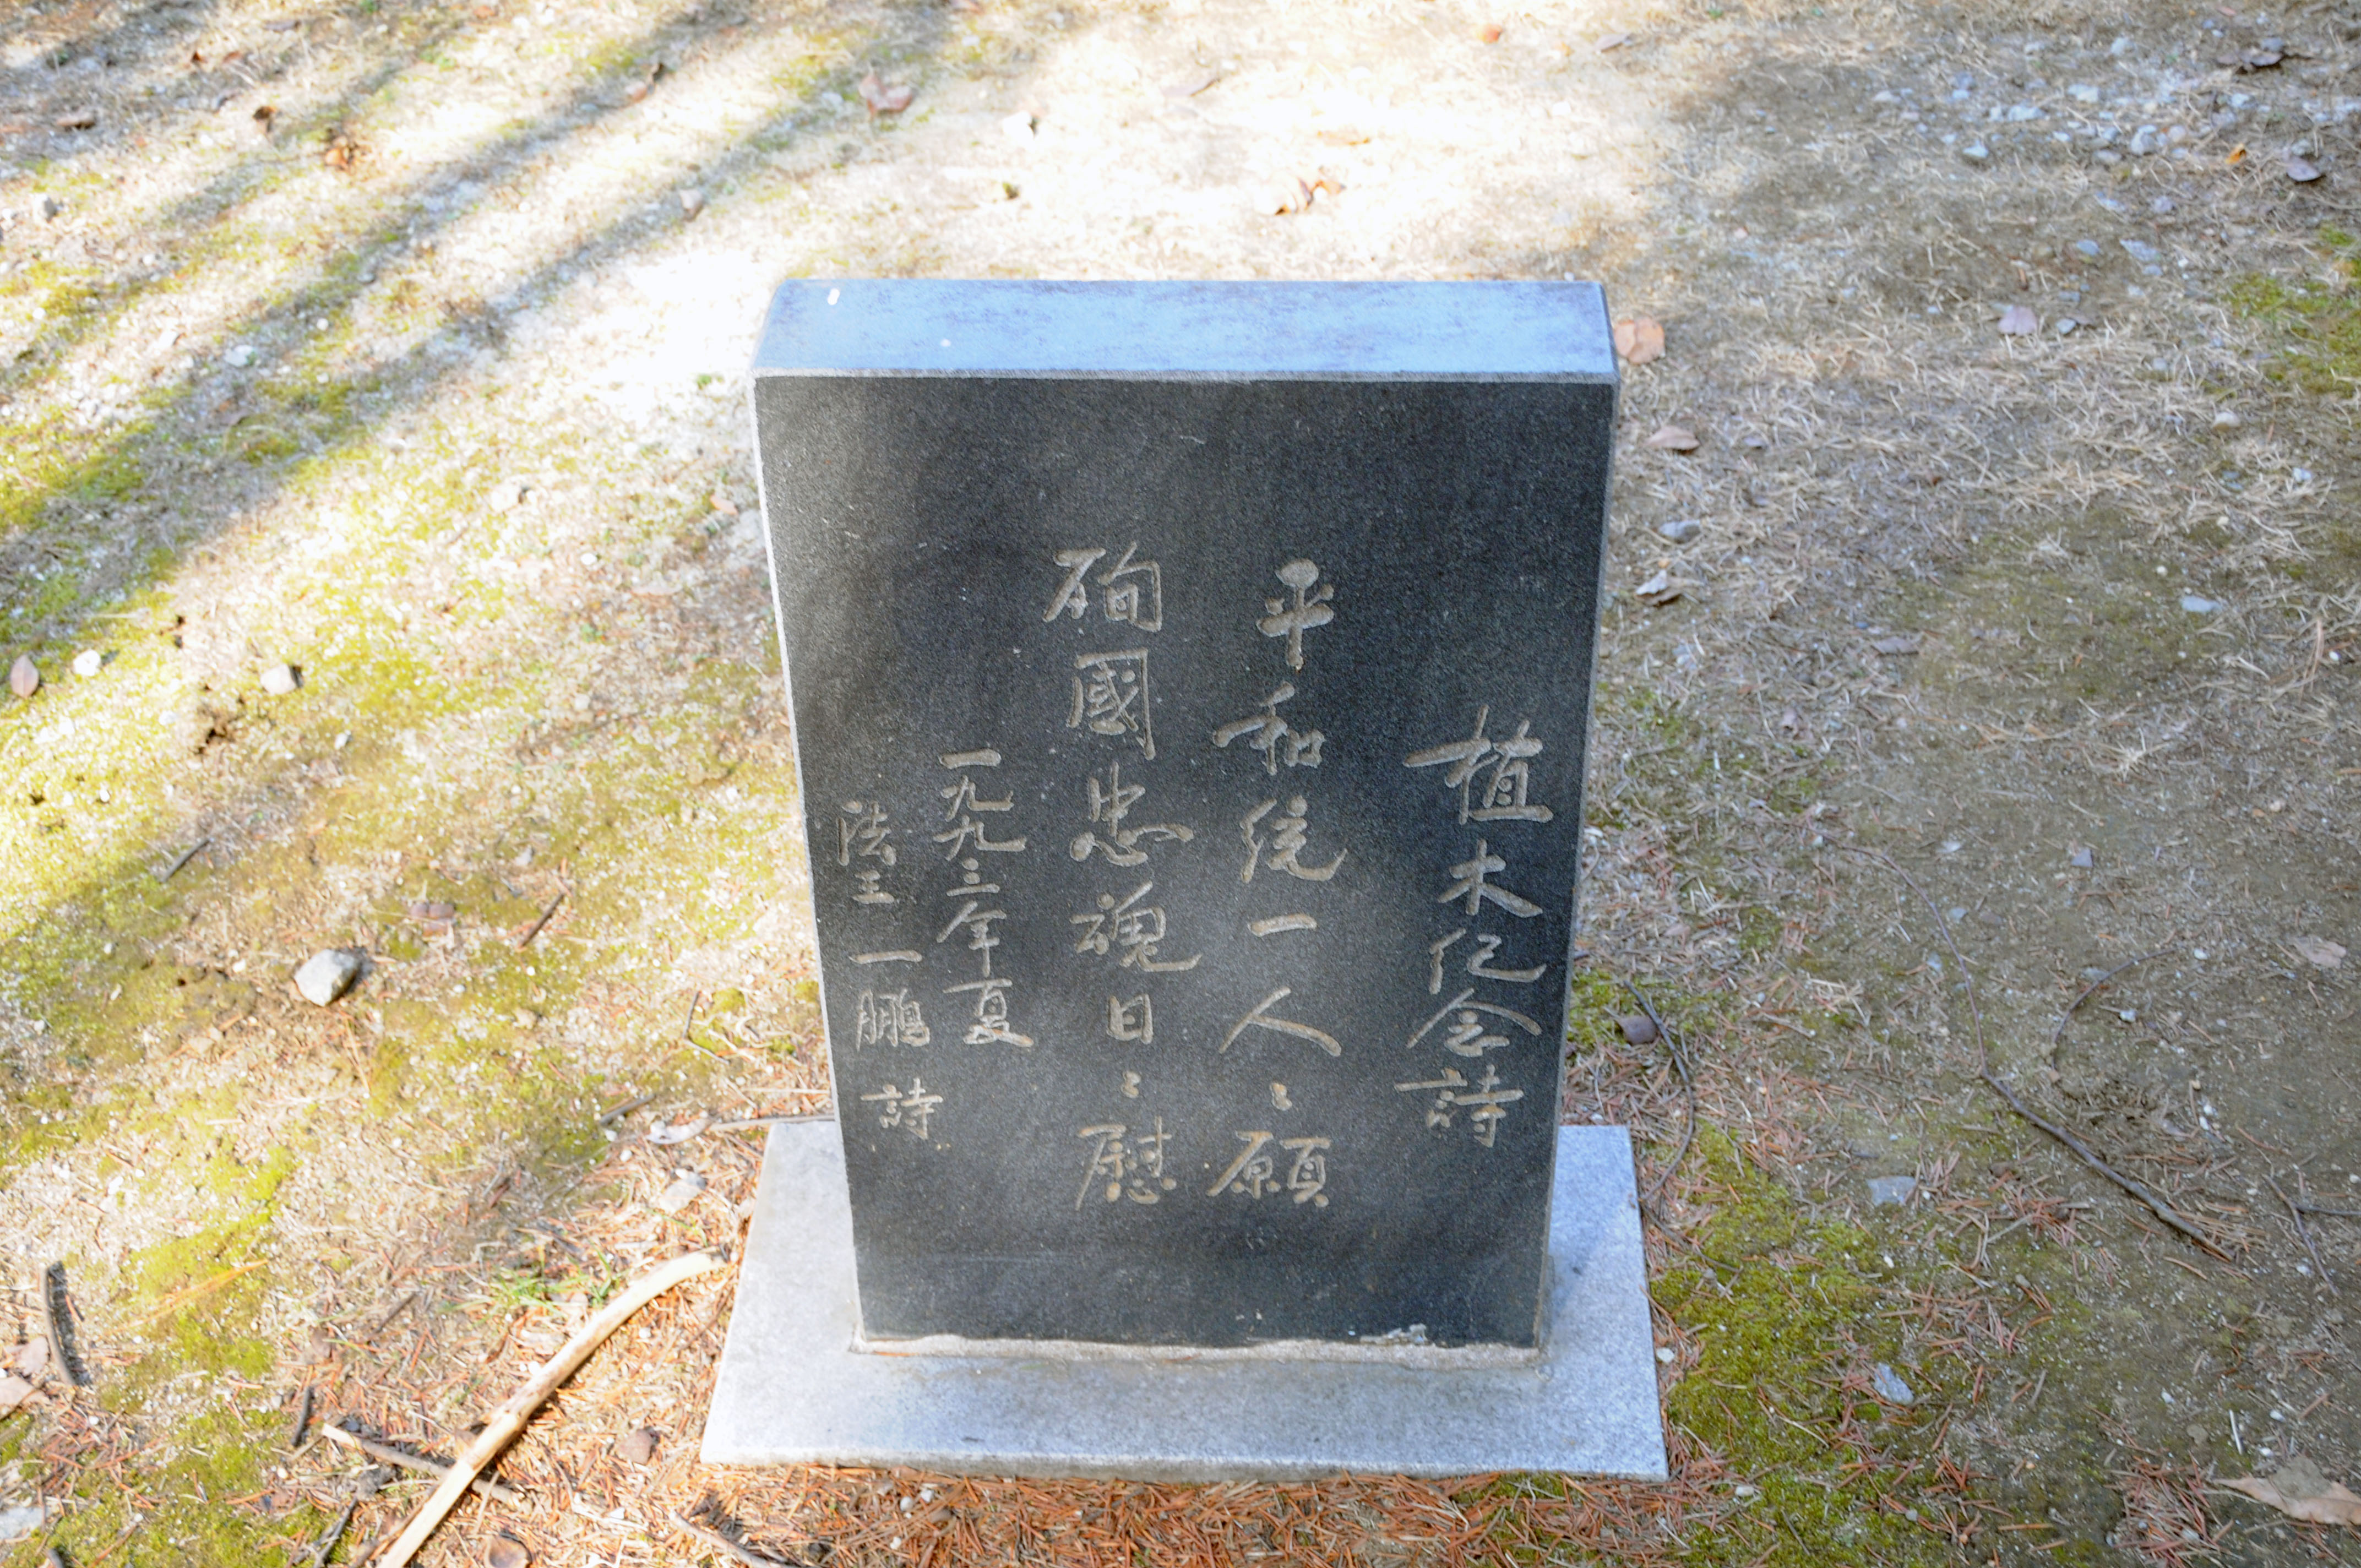 植木紀念詩
平和統一人々願
殉國忠魂日々慰
一九九三年夏
法王 一鵬 詩